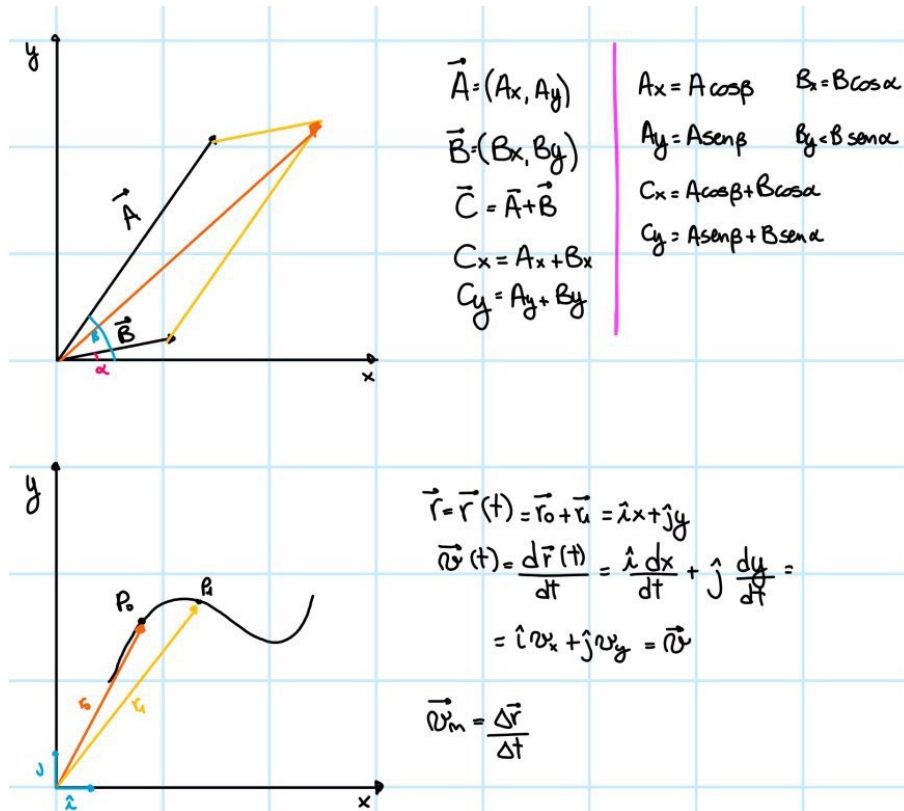 y
A⃗
B⃗
β
α
x
A⃗=(Ax, Ay)
B⃗=(Bx, By)
C⃗ = A⃗+B⃗
Cx = Ax + Bx
Cy = Ay + By
Ax = A cosβ Bx = B cosα
Ay = A senβ By = B senα
Cx = A cosβ + B cosα
Cy = A senβ + B senα
y
P₀ P₁
r₀ r₁
ĵ
î
x
r⃗ = r⃗ (t) = r⃗₀ + r⃗₁ = îx + ĵy
v⃗ (t) = dr⃗ (t)/dt = î dx/dt + ĵ dy/dt =
= î vx + ĵ vy = v⃗
v⃗m = Δr⃗/Δt